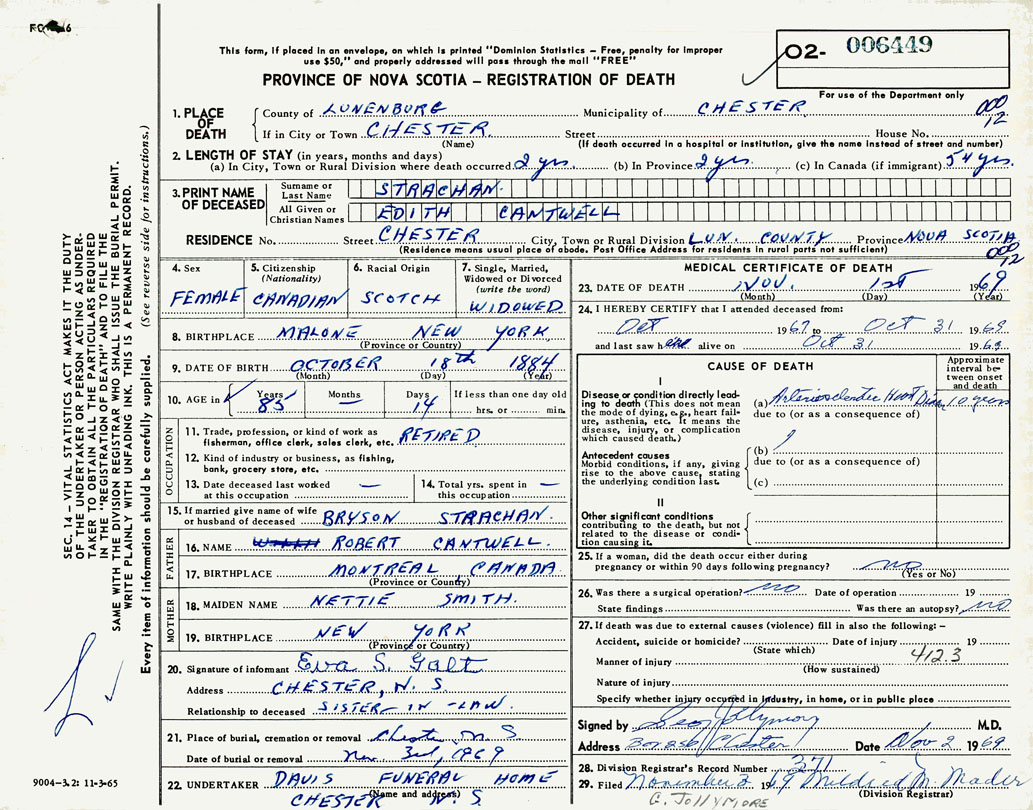 This form, if placed in an envelope, on which is printed "Dominion Statistics – Free, penalty for improper
use $50," and properly addressed will pass through the mail "FREE"
PROVINCE OF NOVA SCOTIA – REGISTRATION OF DEATH
O2- 006449
For use of the Department only
000
12
1. PLACE OF DEATH
County of LUNENBURG Municipality of CHESTER
If in City or Town CHESTER Street House No.
(Name) (If death occurred in a hospital or institution, give the name instead of street and number)
2. LENGTH OF STAY (in years, months and days)
(a) In City, Town or Rural Division where death occurred 2 yrs. (b) In Province 2 yrs. (c) In Canada (if immigrant) 54 yrs.
3. PRINT NAME OF DECEASED
Surname or Last Name STRACHAN
All Given or Christian Names EDITH CANTWELL
RESIDENCE No. Street CHESTER City, Town or Rural Division LUN. COUNTY Province NOVA SCOTIA
(Residence means usual place of abode. Post Office Address for residents in rural parts not sufficient)
000
12
4. Sex
FEMALE
5. Citizenship
(Nationality)
CANADIAN
6. Racial Origin
SCOTCH
7. Single, Married,
Widowed or Divorced
(write the word)
WIDOWED
8. BIRTHPLACE MALONE NEW YORK
(Province or Country)
9. DATE OF BIRTH OCTOBER 18th 1884
(Month) (Day) (Year)
10. AGE in Years 85 Months — Days 14 If less than one day old
hrs. or min.
OCCUPATION
11. Trade, profession, or kind of work as
fisherman, office clerk, sales clerk, etc. RETIRED
12. Kind of industry or business, as fishing,
bank, grocery store, etc.
13. Date deceased last worked
at this occupation —
14. Total yrs. spent in
this occupation —
15. If married give name of wife
or husband of deceased BRYSON STRACHAN
FATHER
16. NAME ROBERT CANTWELL.
17. BIRTHPLACE MONTREAL CANADA
(Province or Country)
MOTHER
18. MAIDEN NAME NETTIE SMITH.
19. BIRTHPLACE NEW YORK
(Province or Country)
20. Signature of informant Eva S. Galt
Address CHESTER, N. S.
Relationship to deceased SISTER-IN-LAW.
21. Place of burial, cremation or removal Chester N S
Date of burial or removal Nov. 3rd, 1969
22. UNDERTAKER DAVIS FUNERAL HOME
(Name and address)
CHESTER N. S.
MEDICAL CERTIFICATE OF DEATH
23. DATE OF DEATH NOV. 1st 1969
(Month) (Day) (Year)
24. I HEREBY CERTIFY that I attended deceased from:
Oct 1967 to Oct 31 1969
and last saw her alive on Oct 31 1969
CAUSE OF DEATH
Approximate
interval be-
tween onset
and death
I
Disease or condition directly lead-
ing to death (This does not mean
the mode of dying, e.g., heart fail-
ure, asthenia, etc. It means the
disease, injury, or complication
which caused death.)
(a) Arteriosclerotic Heart Disease 10 years
due to (or as a consequence of)
Antecedent causes
Morbid conditions, if any, giving
rise to the above cause, stating
the underlying condition last.
(b)
due to (or as a consequence of)
(c)
II
Other significant conditions
contributing to the death, but not
related to the disease or condi-
tion causing it.
25. If a woman, did the death occur either during
pregnancy or within 90 days following pregnancy? no
(Yes or No)
26. Was there a surgical operation? no Date of operation 19
State findings Was there an autopsy? no
27. If death was due to external causes (violence) fill in also the following: –
Accident, suicide or homicide? Date of injury 19
(State which) 412.3
Manner of injury
(How sustained)
Nature of injury
Specify whether injury occurred in industry, in home, or in public place
Signed by Geo Jollymore M.D.
Address Chester Date Nov 2 1969
28. Division Registrar's Record Number 371
29. Filed November 2 1969 Mildred M. Mader
(Division Registrar)
G. JOLLYMORE
SEC. 14 – VITAL STATISTICS ACT MAKES IT THE DUTY
OF THE UNDERTAKER OR PERSON ACTING AS UNDER-
TAKER TO OBTAIN ALL THE PARTICULARS REQUIRED
IN THE "REGISTRATION OF DEATH" AND TO FILE THE
SAME WITH THE DIVISION REGISTRAR WHO SHALL ISSUE THE BURIAL PERMIT.
WRITE PLAINLY WITH UNFADING INK. THIS IS A PERMANENT RECORD.
Every item of information should be carefully supplied. (See reverse side for instructions.)
9004-3.2: 11-3-65